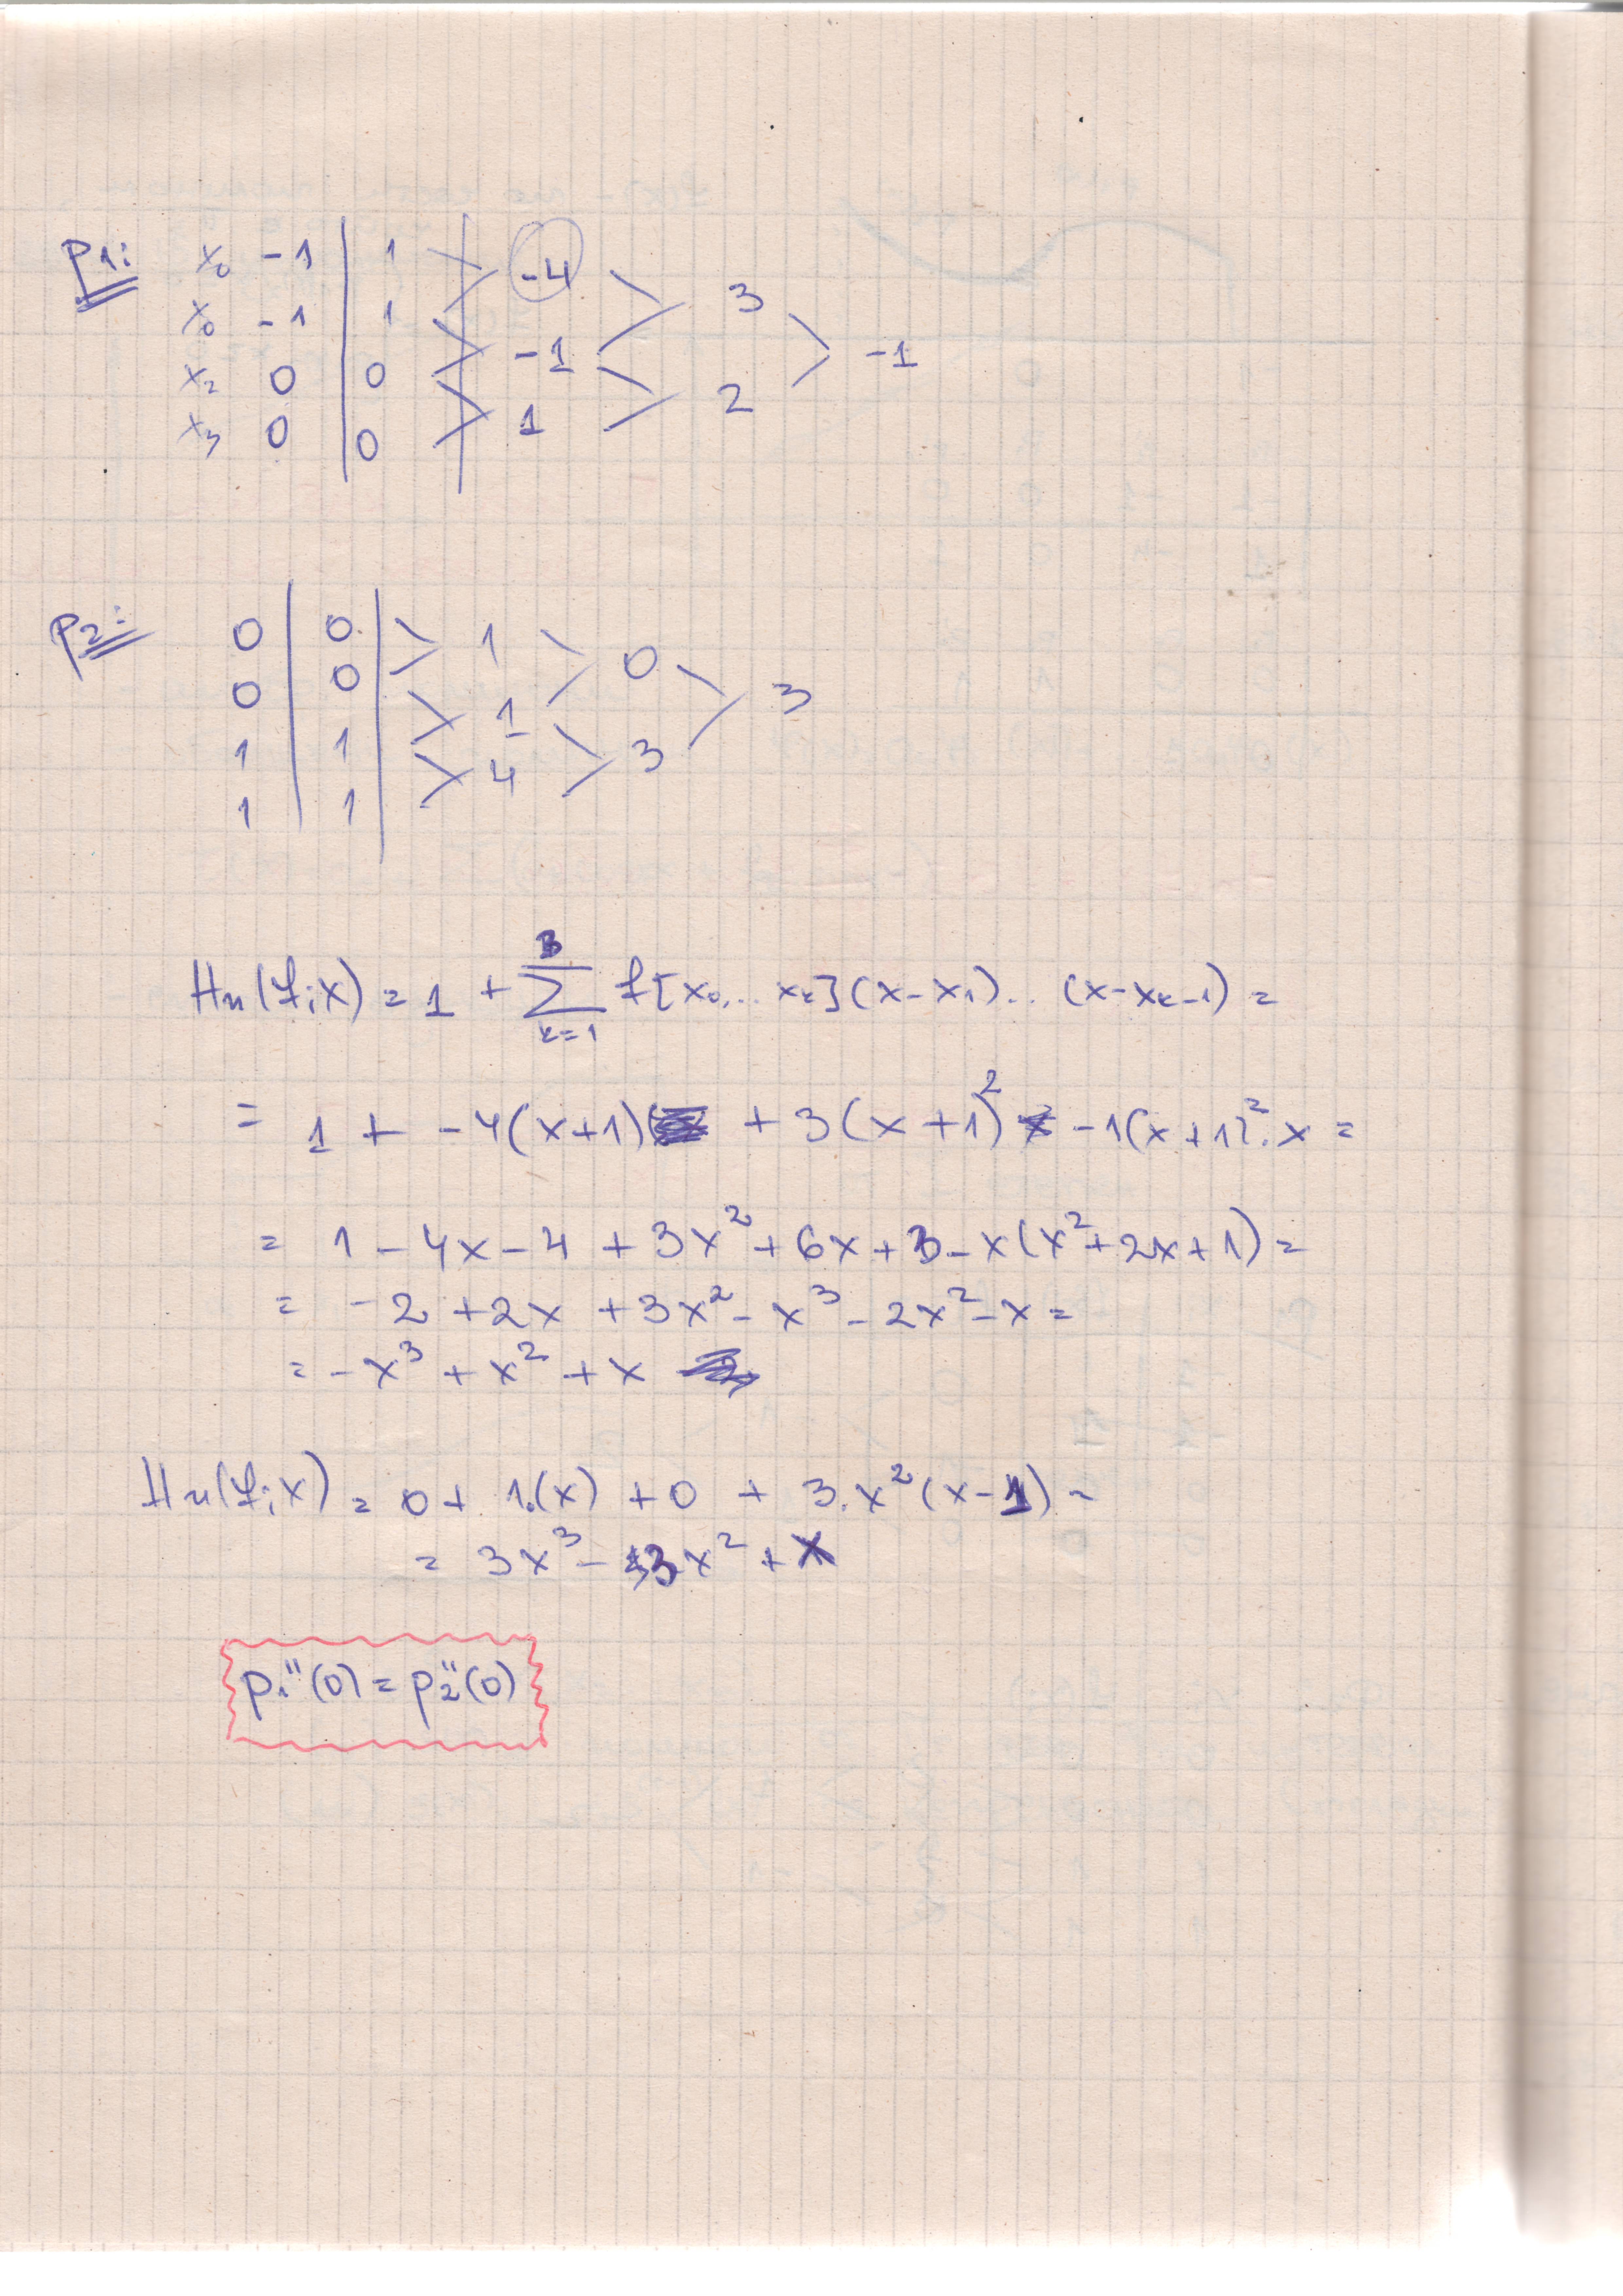 P1: x₀ -1 | 1 -4 3 -1
x₀ -1 | 1 -1 2
x₂ 0 | 0 1
x₃ 0 | 0
P2: 0 | 0 1 0 3
0 | 0 1 3
1 | 1 4
1 | 1
Hn(f;x) = 1 + 3 Σ k=1 f[x₀,... xₖ](x-x₁)..(x-xₖ₋₁) =
= 1 + -4(x+1) + 3(x+1)² -1(x+1)².x =
= 1 - 4x - 4 + 3x² + 6x + 3 - x(x² + 2x + 1) =
= -2 + 2x + 3x² - x³ - 2x² - x =
= -x³ + x² + x
Hn(f;x) = 0 + 1.(x) + 0 + 3.x²(x-1) =
= 3x³ - 3x² + x
P₁"(0) = P₂"(0)